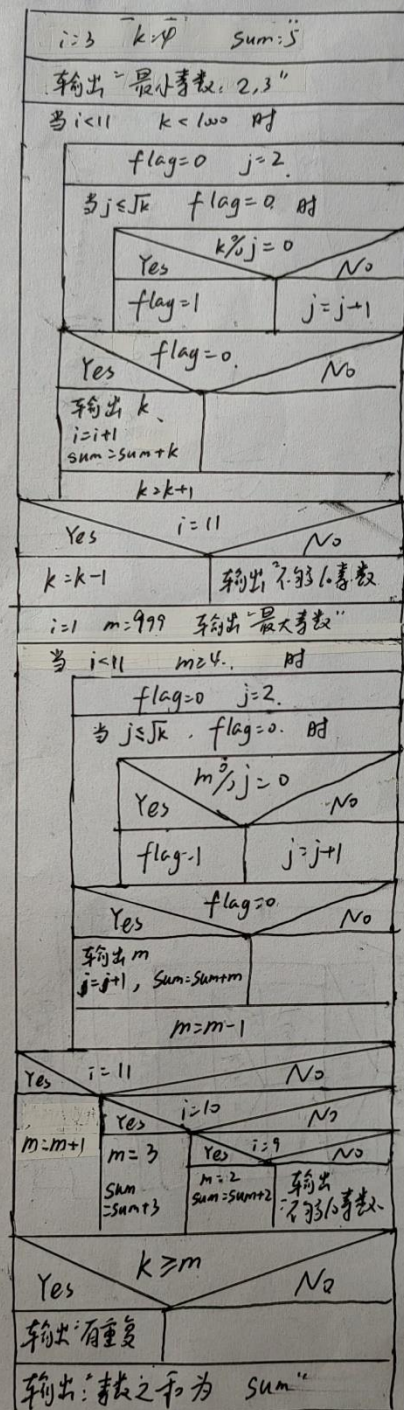 i=3 k=4 sum=5
输出"最小素数: 2,3"
当i<11 k<1000 时
flag=0 j=2
当j≤√k flag=0 时
k%j=0
Yes No
flag=1 j=j+1
flag=0
Yes No
输出 k、
i=i+1
sum=sum+k
k=k+1
i=11
Yes No
k=k-1 输出"不够10素数
i=1 m=999 输出"最大素数"
当 i<11 m≥4 时
flag=0 j=2
当 j≤√k , flag=0 时
m%j=0
Yes No
flag=1 j=j+1
flag=0
Yes No
输出m
j=j+1, sum=sum+m
m=m-1
Yes i=11 No
Yes i=10 No
Yes i=9 No
m=m+1
m=3
sum
=sum+3
m=2
sum=sum+2
输出
"不够10素数
k≥m
Yes No
输出"有重复
输出:"素数之和为 sum"